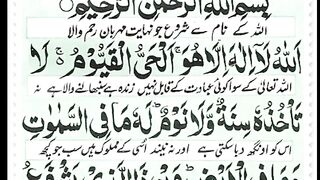 بِسْمِ اللّٰهِ الرَّحْمٰنِ الرَّحِيْمِ
اللہ کے نام سے شروع جو نہایت مہربان رحم والا
اَللّٰهُ لَاۤ اِلٰهَ اِلَّا هُوَ ۚ اَلْحَيُّ الْقَيُّوْمُ ۚ لَا
اللہ تعالیٰ کے سوا کوئی عبادت کے قابل نہیں زندہ ہے سنبھالنے والا ہے نہ
تَاْخُذُهٗ سِنَةٌ وَّلَا نَوْمٌ ؕ لَهٗ مَا فِي السَّمٰوٰتِ
اس کو اونگھ دبا سکتی ہے اور نہ نیند اُسی کے مملوک ہیں سب جو کچھ
وَمَا فِي الْاَرْضِ ؕ مَنْ ذَا الَّذِيْ يَشْفَعُ